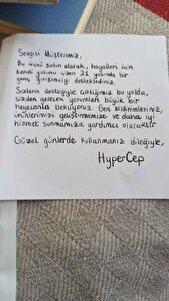 Sevgili Müşterimiz,
Bu ürünü satın alarak, hayalleri için
kendi yolunu çizen 21 yaşında bir
genç girişimciyi desteklediniz.
Sizlerin desteğiyle çıktığımız bu yolda,
sizden gelecek yorumları büyük bir
heyecanla bekliyoruz. Geri bildirimleriniz,
ürünlerimizi geliştirmemize ve daha iyi
hizmet sunmamıza yardımcı olacaktır
Güzel günlerde kullanmanız dileğiyle,
HyperCep